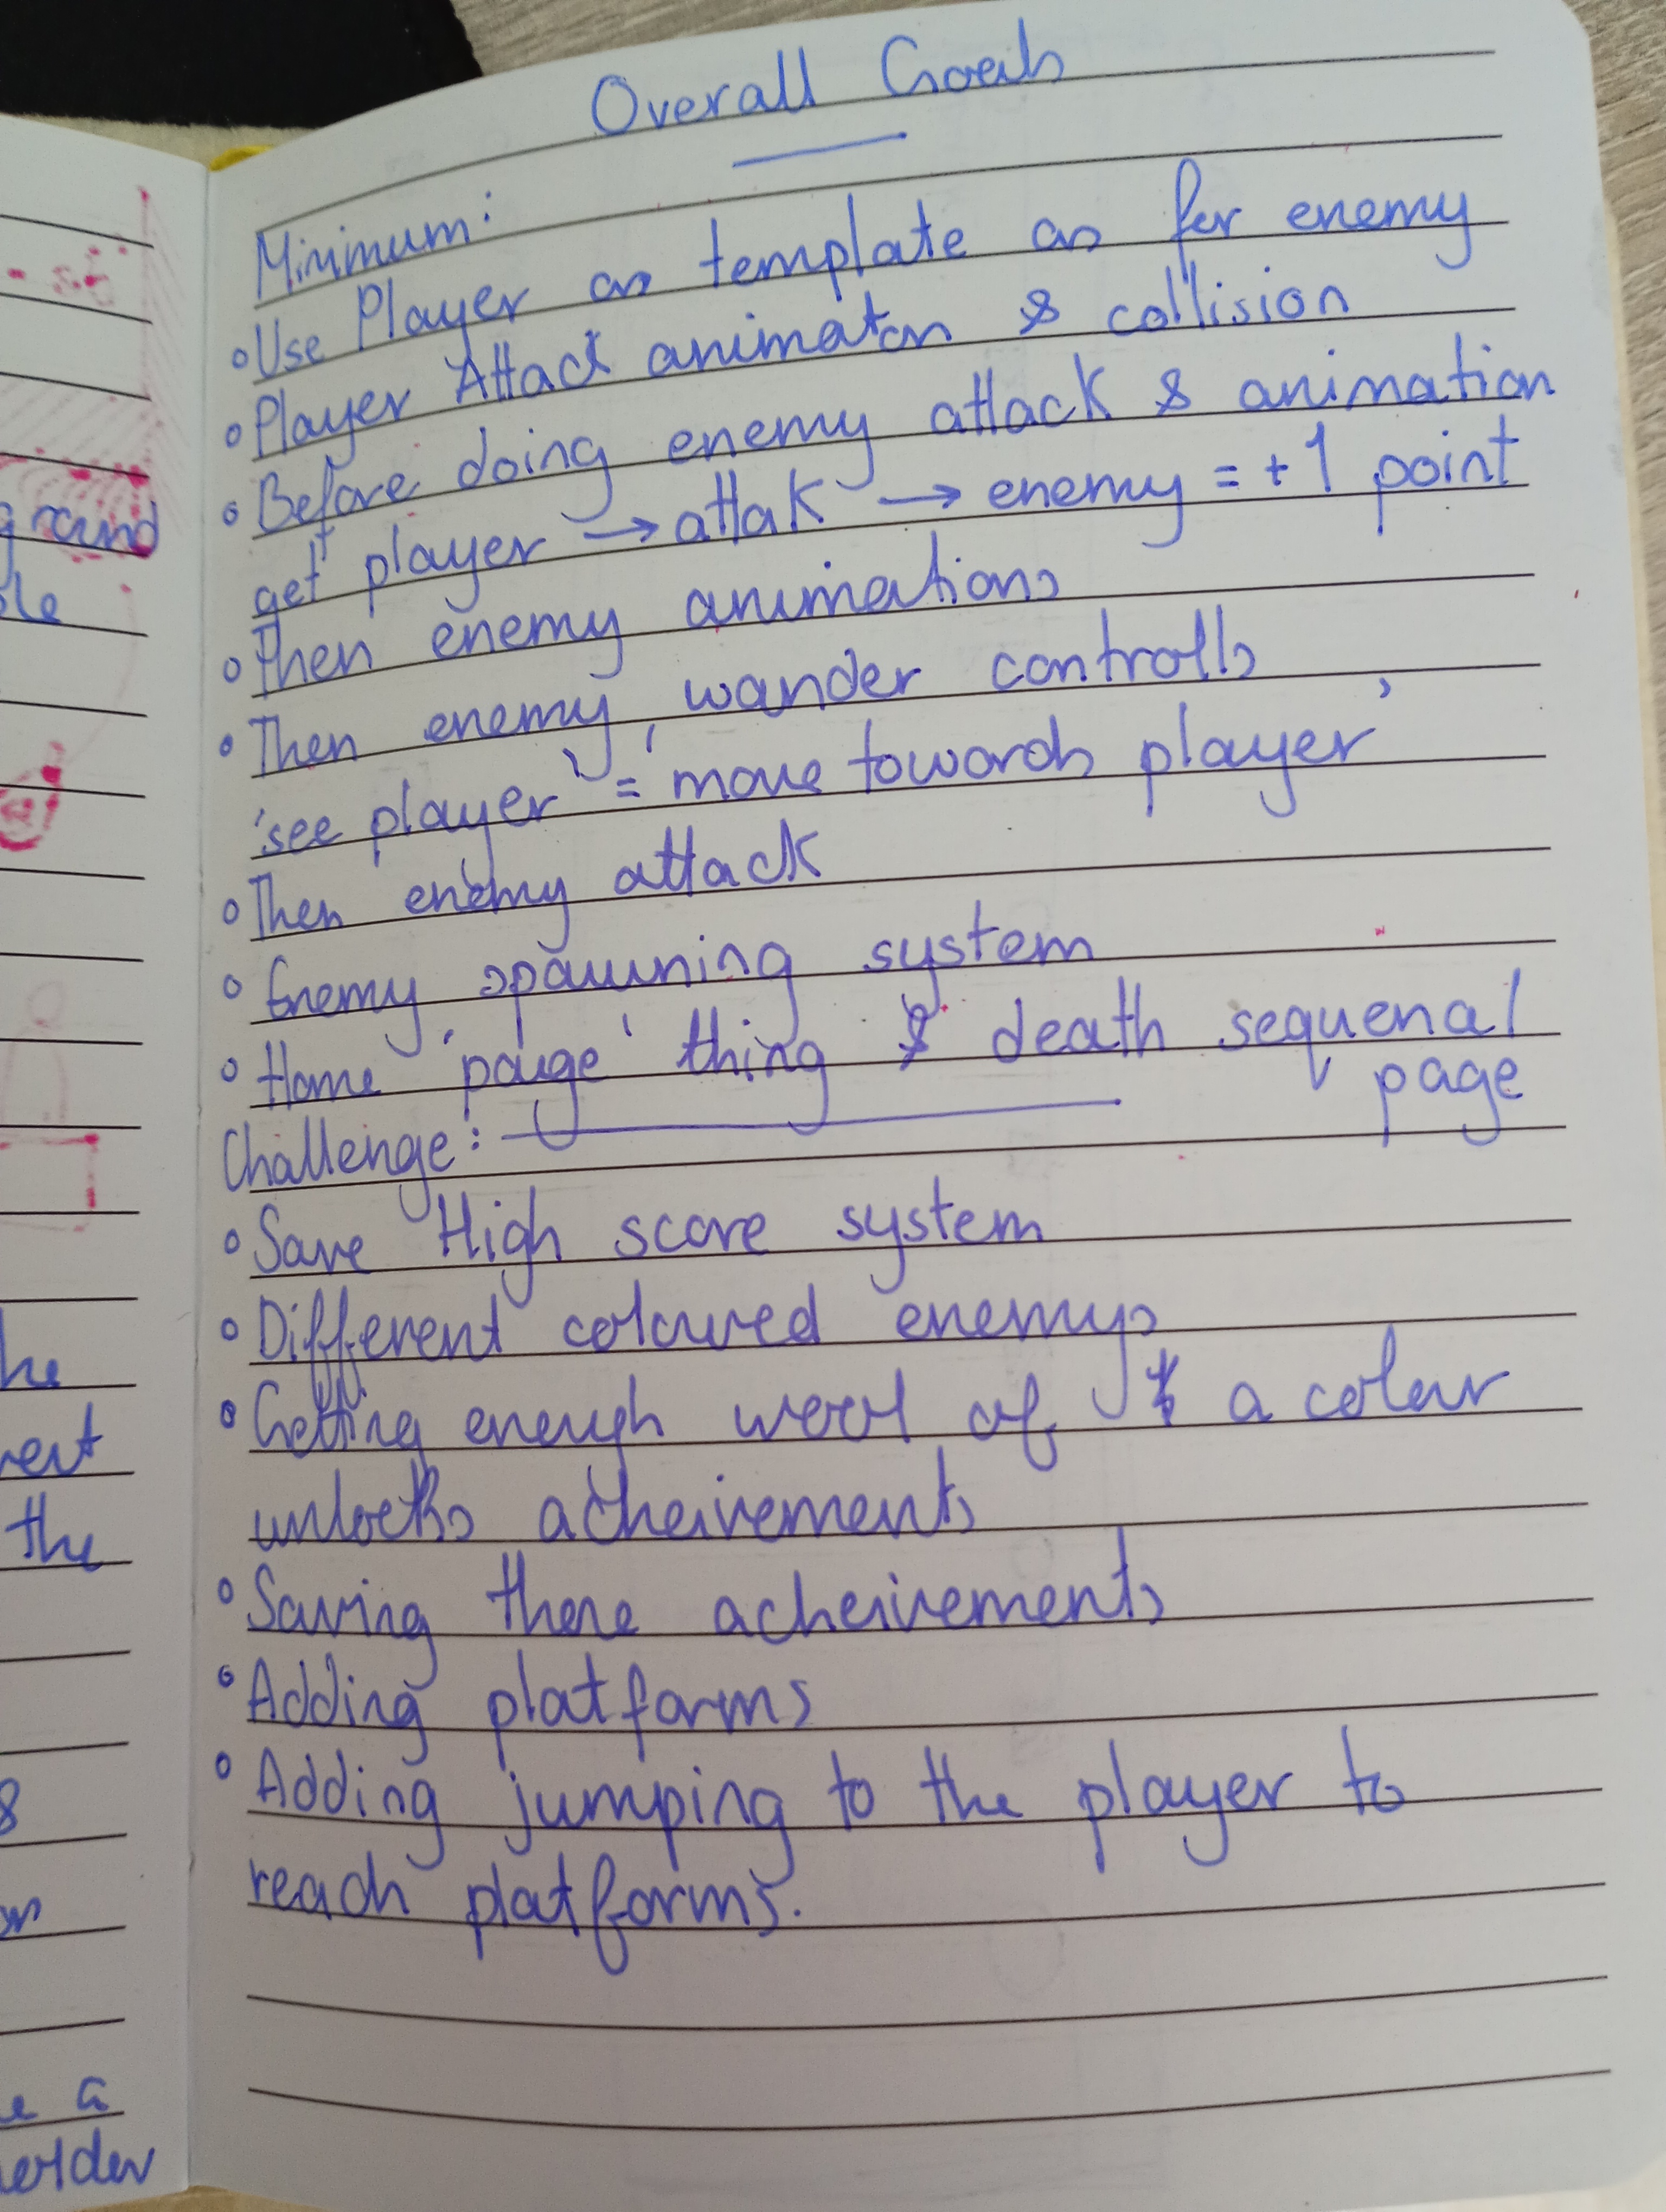 Overall Goals
Minimum:
Use Player as template as for enemy
Player Attack animaton & collision
Before doing enemy attack & animation
get player → attak → enemy = +1 point
Then enemy animations
Then enemy 'wander' controlls
'see player' = 'move towards player'
Then enemy attack
Enemy spawning system
Home 'pauge' thing & death sequenal
page
Challenge:
Save High score system
Different coloured enemys
Getting enough wool of a colour
unlocks acheivements
Saving these acheivements
Adding platforms
Adding jumping to the player to
reach platforms.
ground
he
the
8
e a